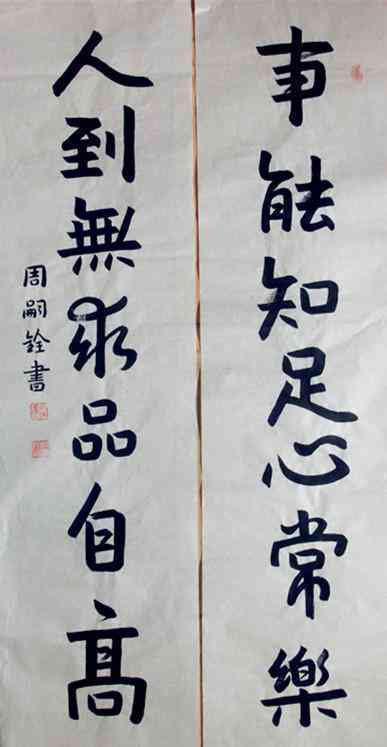 事能知足心常樂
人到無求品自高
周嗣銓書